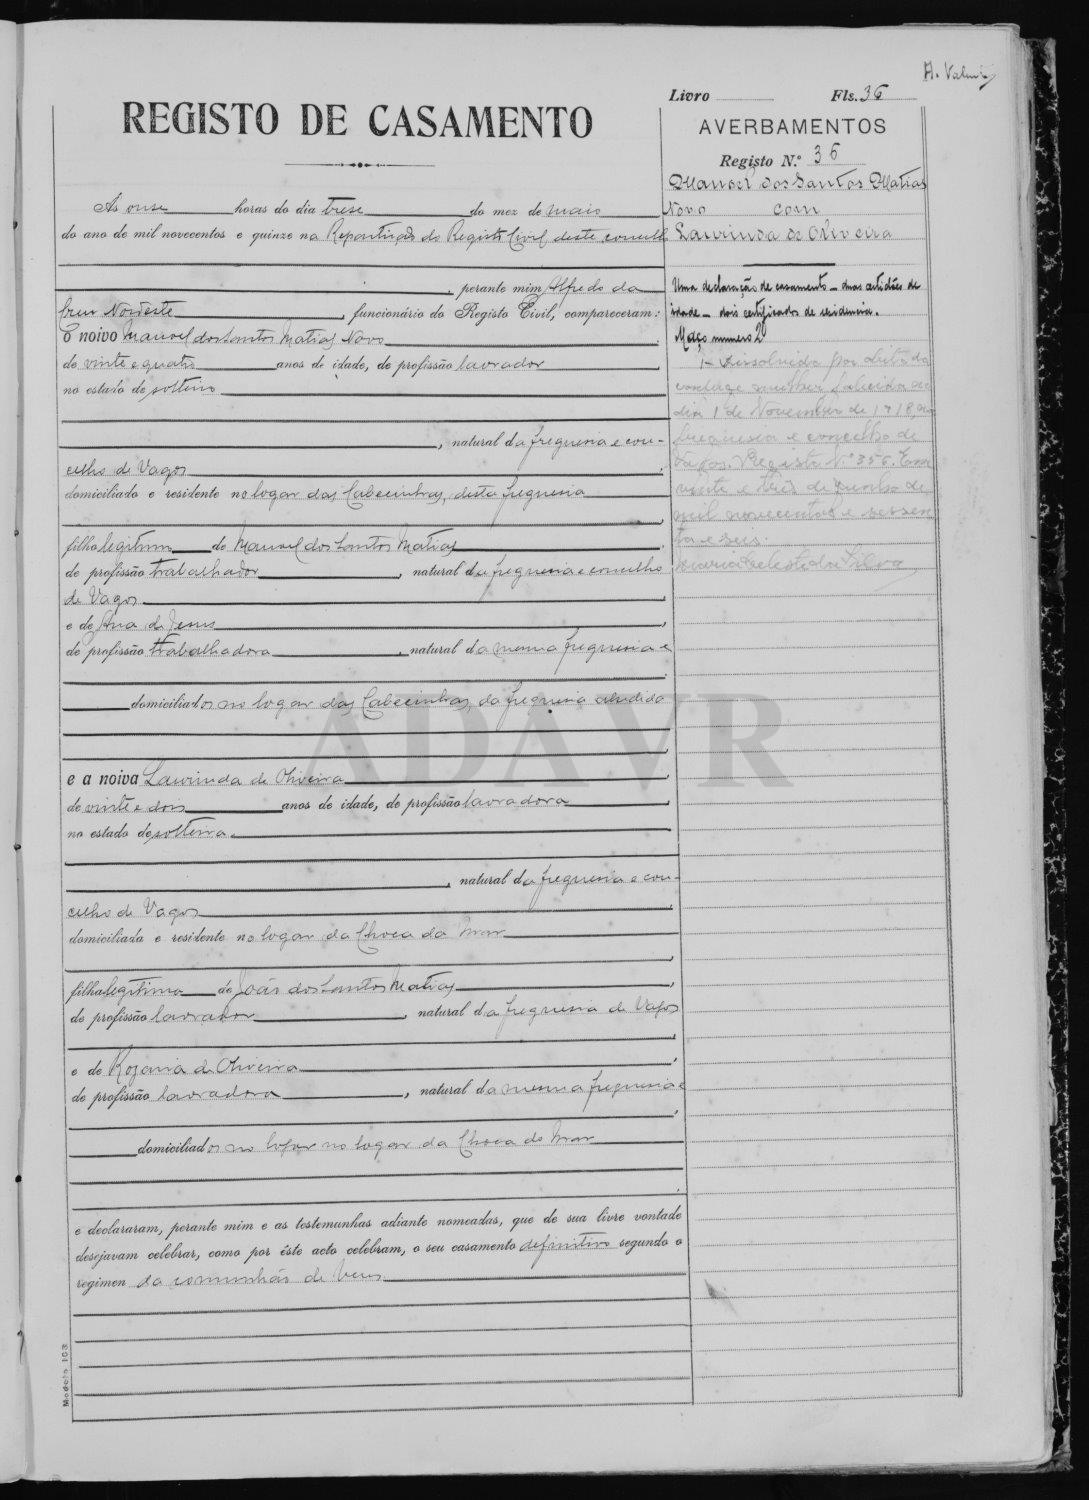 A. Valente
Livro Fls. 36
REGISTO DE CASAMENTO
AVERBAMENTOS
Registo N.º 36
Manoel dos Santos Matias
Novo com
Laurinda de Oliveira
Uma declaração de casamento - duas certidões de
idade - dois certificados de residencia.
Maço numero 2
1 - Dissolvido por óbito da
mulher falecida no
dia 1 de Novembro de 1918, na
freguesia e concelho de
Vagos. Registo Nº 356. Em
vinte e três de Junho de
mil novecentos e sessen
ta e seis.
Maria Celeste da Silva
Ás onse horas do dia trese do mez de maio
do ano de mil novecentos e quinze na Repartição do Registo Civil deste concelho
, perante mim Alfredo da
Cruz Nordeste, funcionário do Registo Civil, compareceram:
O noivo Manoel dos Santos Matias Novo
de vinte e quatro anos de idade, de profissão lavrador
no estado de solteiro
, natural da freguesia e con-
celho de Vagos
domiciliado e residente no logar das Cabecinhas, desta freguesia
filho legitimo de Manoel dos Santos Matias
de profissão trabalhador, natural da freguesia e concelho
de Vagos
e de Ana de Jesus
de profissão trabalhadora, natural da mesma freguesia e
domiciliados no logar das Cabecinhas, da freguesia aludida
e a noiva Laurinda de Oliveira
de vinte e dois anos de idade, de profissão lavradora
no estado de solteira
, natural da freguesia e con-
celho de Vagos
domiciliada e residente no logar da Choca do Mar
filha legitima de João dos Santos Matias
de profissão lavrador, natural da freguesia de Vagos
e de Rozaria de Oliveira
de profissão lavradora, natural da mesma freguesia e
domiciliados no logar no logar da Choca do Mar
e declararam, perante mim e as testemunhas adiante nomeadas, que de sua livre vontade
desejavam celebrar, como por êste acto celebram, o seu casamento definitivo segundo o
regimen da comunhão de bens
Modelo 103
ADAVR